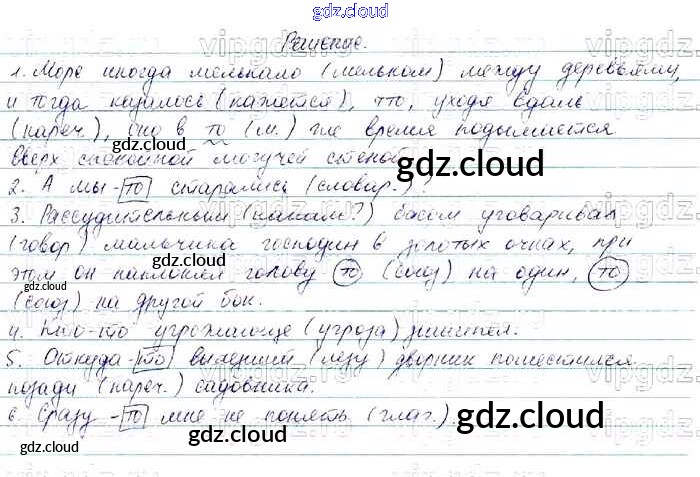 gdz.cloud
Решение.
1. Море иногда мелькало (мельком) между деревьями,
и тогда казалось (кажется), что, уходя вдаль
(нареч.), оно в то (м.) же время подымается
вверх спокойной могучей стеной.
gdz.cloud
gdz.cloud
2. А мы-то старались (словар.)!
3. Рассудительным (каким?) басом уговаривал
(говор) мальчика господин в золотых очках, при
этом он наклонял голову то (союз) на один, то
gdz.cloud
(союз) на другой бок.
gdz.cloud
4. Кто-то угрожающе (угроза) зашипел.
5. Откуда-то вылезший (лезу) дворник поместился
позади (нареч.) садовника.
6. Сразу-то мне не понять (глаг.).
gdz.cloud
gdz.cloud
gdz.cloud
gdz.cloud